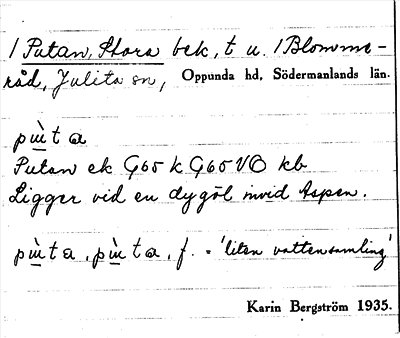 / Putan, Stora bek, t u. / Blomme-
råd, Julita sn, Oppunda hd, Södermanlands län.
Putan ek G65 k G65 VÖ kb
Ligger vid en dygöl invid Aspen.
f. = 'liten vattensamling'
Karin Bergström 1935.